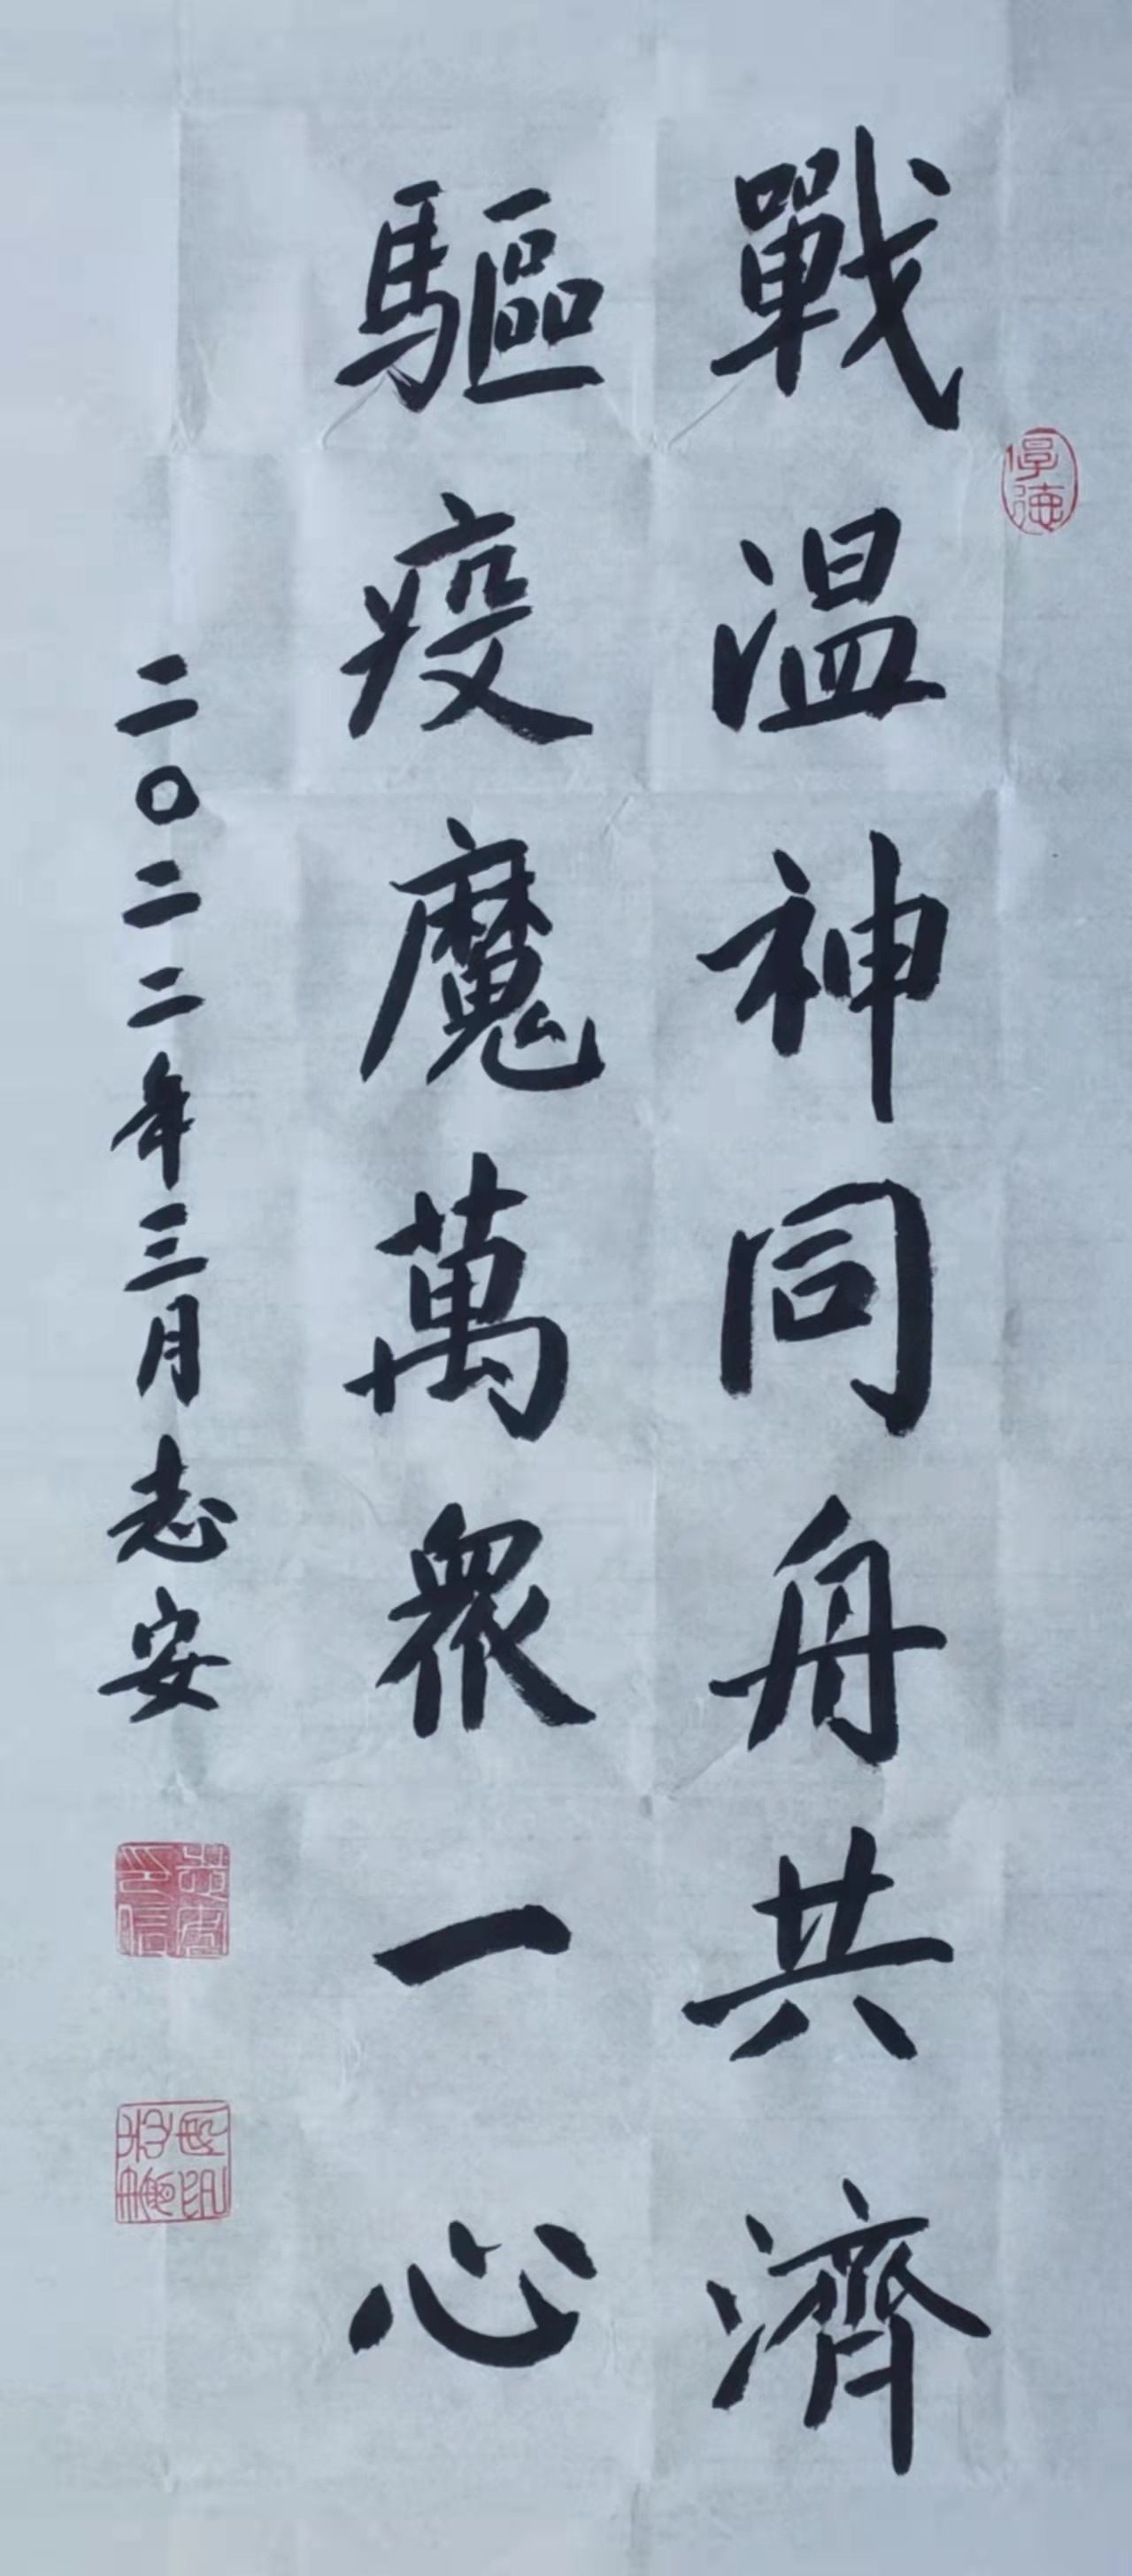 戰温神同舟共濟
驅疫魔萬眾一心
二〇二二年三月志安
厚德